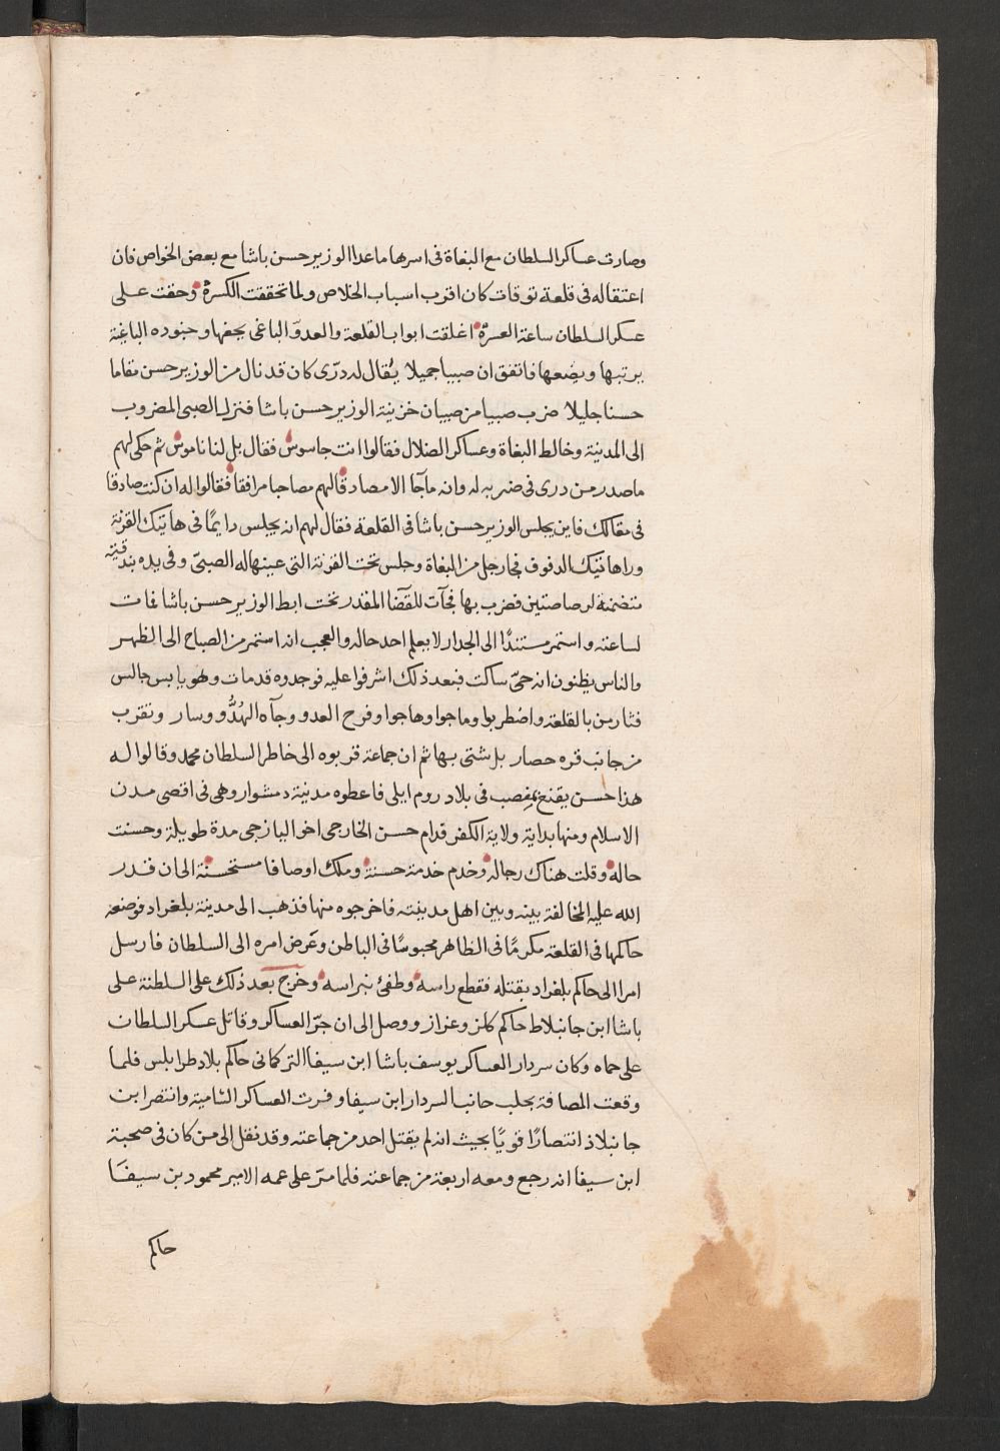 وصارت عساكر السلطان مع البغاة فى اسرها ماعدا الوزير حسن باشا مع بعض الخواص فان
اعتقاله فى قلعة توقات كان اقوب اسباب الخلاص ولما تحققت الكسرة وحقت على
عسكر السلطان ساعة العسرّة اغلقت ابواب القلعة والعدوّ الباغى يحفها وجنوده الباغية
يرتبها ويضعها فاتفق ان صبيا جميلا يُقال له درّى كان قد نال من الوزير حسن مقاما
حسنا جليلا ضرب صبيا من صبيان خزينة الوزير حسن باشا فنزل الصبى المضروب
الى المدينة وخالط البغاة وعساكر الضلال فقالوا انت جاسوس فقال بل لنا ناموس ثم حكى لهم
ماصدر من درى فى ضربه له وانه ماجآ الا مصادقا لهم مصاحبا مرافقا فقالوا له ان كنت صادقا
فى مقالك فاين يجلس الوزير حسن باشا فى القلعة فقال لهم انه يجلس دايمًا فى هاتيك القرنة
ورا هاتيك الدفوف فجا رجل من البغاة وجلس تحت القرنة التى عينها له الصبىّ وفى يده بندقية
متضمنة لرصاصتين فضرب بها فجآت للقضا المقدر تحت ابط الوزير حسن باشا فمات
لساعته واستمر مستندًا الى الجدار لا يعلم احد حاله والعجب انه استمر من الصباح الى الظهر
والناس يظنون انه حىّ ساكت فبعد ذلك اشرفوا عليه فوجدوه قدمات وهو يابس جالس
فثار من بالقلعة واضطربوا وماجوا وهاجوا وفرح العدو وجآه الهُدُّو وسار وتقرب
من جانب قره حصار بل شتى بها ثم ان جماعة قربوه الى خاطر السلطان محمد وقالوا له
هذا حسن يقنع بمنصب فى بلاد روم ايلى فاعطوه مدينة دمشوار وهى فى اقصى مدن
الاسلام ومنها بداية ولاية الكفر قدام حسن الخارجى اخو اليازجى مدة طويلة وحسنت
حاله وقلت هناك رجاله وخدم خدمة حسنة وملك اوصافا مستحسنة الى ان قدر
الله عليه المخالفة بينه وبين اهل مدينته فاخرجوه منها فذهب الى مدينة بلغراد فوضعه
حاكمها فى القلعة مكرمًا فى الظاهر محبوسًا فى الباطن وعَرض امره الى السلطان فارسل
امرا الى حاكم بلغراد بقتله فقطع راسه وطفئ نبراسه وخرج بعد ذلك على السلطنة على
باشا ابن جانبلاط حاكم كلز وعزاز ووصل الى ان جرّ العساكر وقاتل عسكر السلطان
على حماه وكان سردار العساكر يوسف باشا ابن سيفا التركمانى حاكم بلاد طرابلس فلما
وقعت المصافة بحلب السردار ابن سيفا وفرت العساكر الشامية وانتصر ابن
جانبلاذ انتصارًا قويًا بحيث انه لم يقتل احد من جماعته وقد نقل الى من كان فى صحبة
ابن سيفا انه رجع ومعه اربعة من جماعته فلما مرّ على عمه الامير محمود بن سيفَا
حاكم